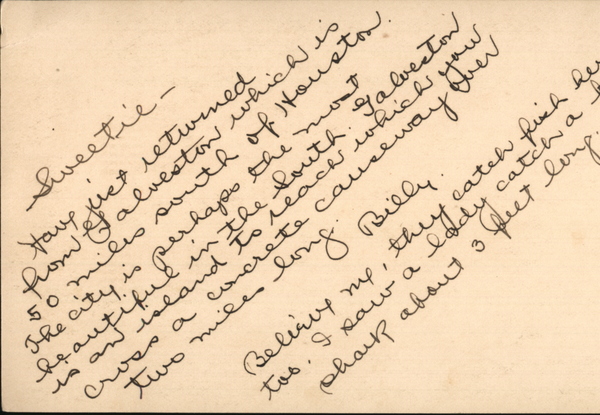 Sweetie-
Have just returned
from Galveston which is
50 miles south of Houston.
The city is perhaps the most
beautiful in the South. Galveston
is an island to reach which you
cross a concrete causeway over
two miles long. Billy.
Believe me, they catch fish
too. I saw a lady catch a
shark about 3 feet long.